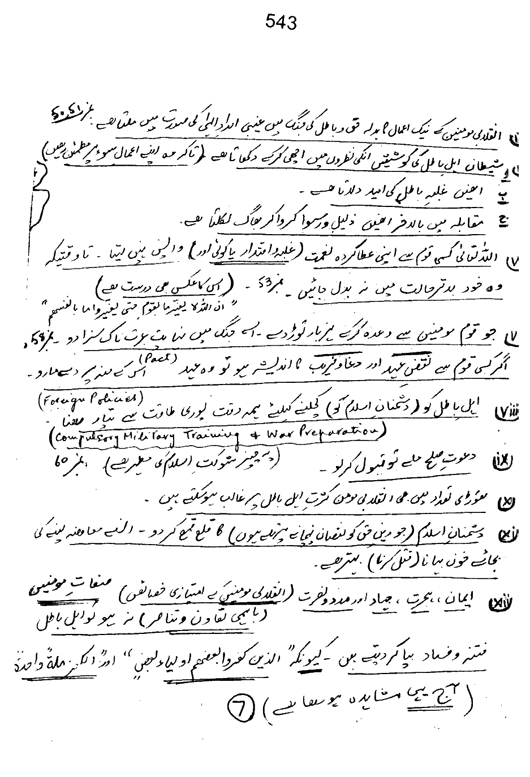 543
نمبر 50،51
i) انقلابی مومنین کے نیک اعمال کا بدلہ حق و باطل کی جنگ میں غیبی امداد الٰہی کی صورت میں ملتا ہے۔
شیطان اہل باطل کی کوششیں انکی نظروں میں اچھی کرکے دکھاتا ہے (تاکہ وہ اپنے اعمال سوء پر مطمئن رہیں)
ب انہیں غلبہ باطل کی امید دلاتا ہے۔
ج مقابلہ میں بالآخر انہیں ذلیل و رسوا کروا کر بھاگ نکلتا ہے۔
v اللہ تعالیٰ کسی قوم سے اپنی عطا کردہ نعمت (غلبہ و اقتدار یا کوئی اور) واپس نہیں لیتا۔ تا وقتیکہ
وہ خود بدتر حالت میں نہ بدل جائیں۔ نمبر 53۔ (اس کا عکس بھی درست ہے)
"ان اللہ لا یغیر ما بقوم حتی یغیروا ما بانفسہم"
v جو قوم مومنین سے وعدہ کرکے ہر بار توڑ دے۔ اسے جنگ میں نہایت عبرت ناک سزا دو۔ نمبر
اگر کسی قوم سے نقض عہد اور دغا و فریب کا اندیشہ ہو تو وہ عہد (Pact) اس کے منہ پر دے مارو۔
(Foreign Policies)
viii اہل باطل کو (دشمنان اسلام کو) کچلنے کیلئے ہمہ وقت پوری طاقت سے تیار رہنا
(Compulsory Military Training & War Preparation)
ix) دعوت صلح ملے تو قبول کرلو۔ (یہ چیز شوکت اسلام کی مظہر ہے) نمبر 60
x) تھوڑی تعداد میں بھی انقلابی مومن کثرت اہل باطل پر غالب ہوسکتے ہیں۔
xi) دشمنان اسلام (جو دین حق کو نقصان پہنچانے پہ تلے ہوں) کا قلع قمع کردو۔ ان سے معاوضہ لینے کی
بجائے خون بہانا (قتل کرنا) بہتر ہے۔
xii) ایمان، ہجرت، جہاد اور مدد و نصرت (انقلابی مومنین کے امتیازی خصائص) صفات مومنین
(باہمی تعاون و تناصر) نہ ہو تو اہل باطل
فتنہ و فساد بپا کردیتے ہیں۔ کیونکہ "الذین کفروا بعضہم اولیاء بعض" اور "الکفر ملۃ واحدۃ
(آج بھی مشاہدہ ہو سکتا ہے)
7